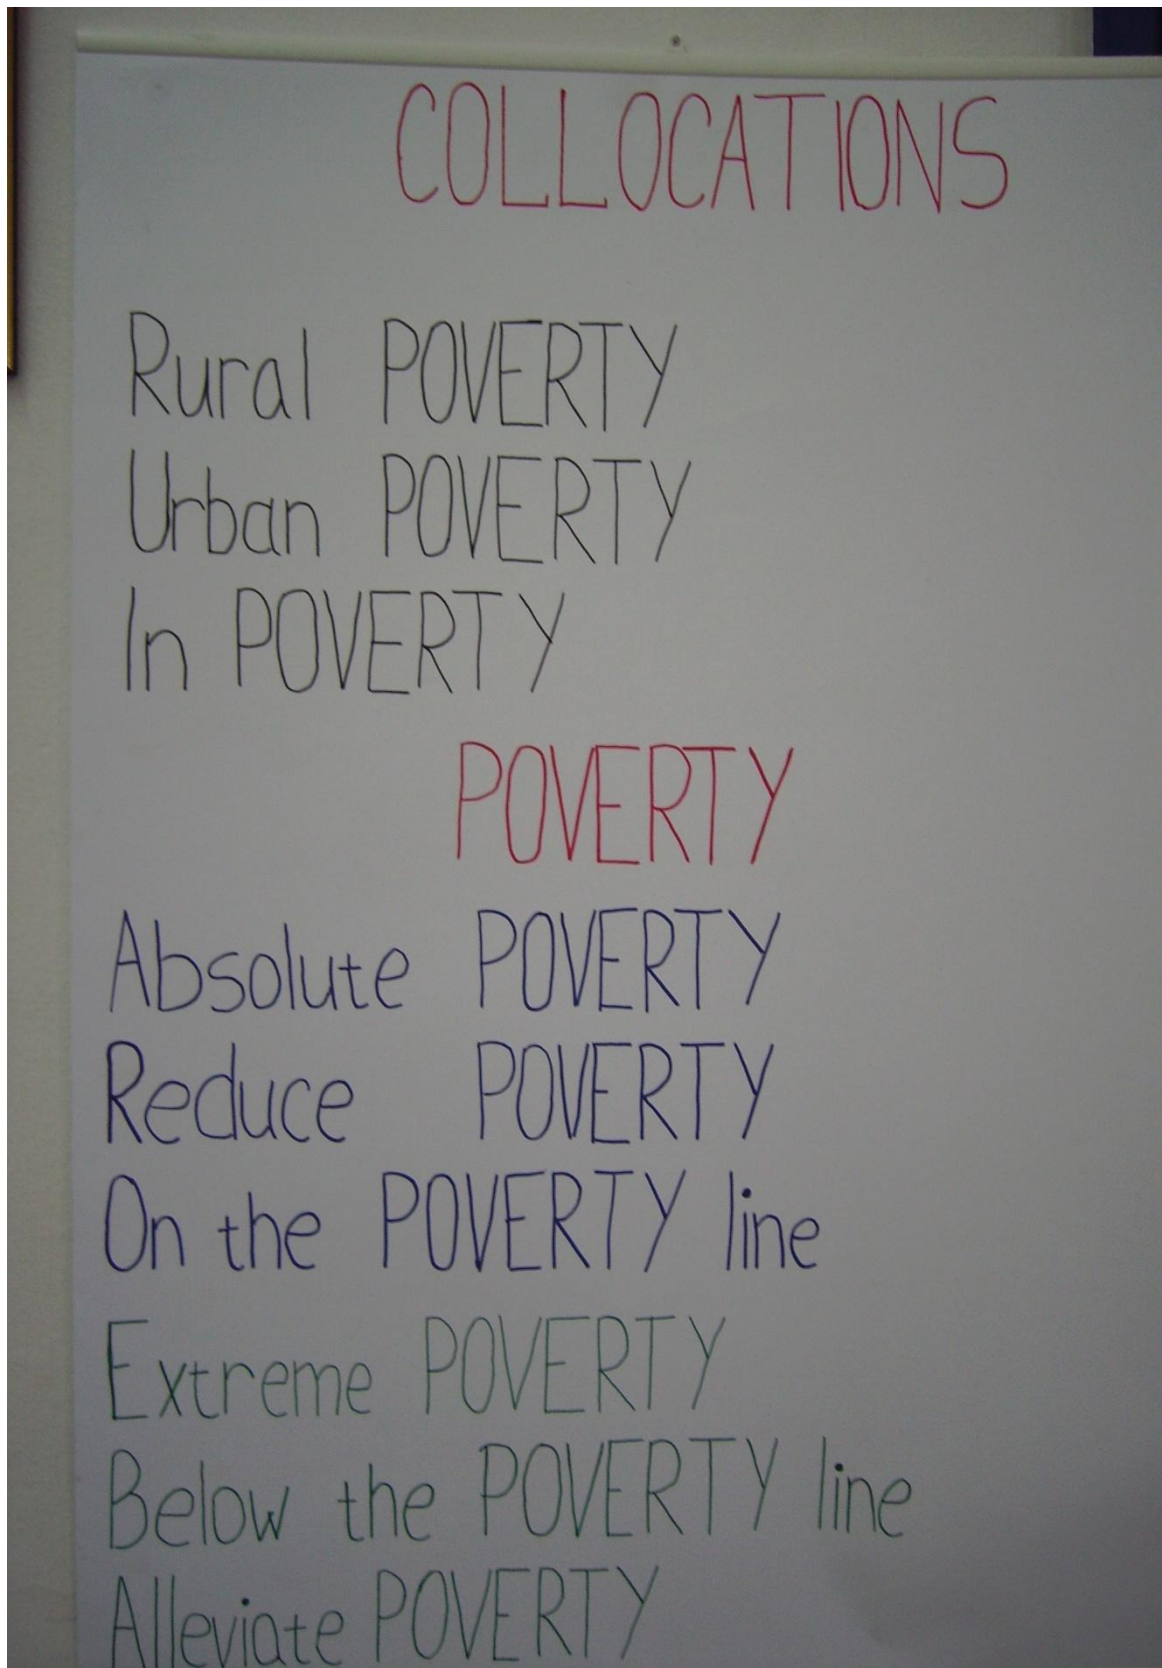 COLLOCATIONS
Rural POVERTY
Urban POVERTY
In POVERTY
POVERTY
Absolute POVERTY
Reduce POVERTY
On the POVERTY line
Extreme POVERTY
Below the POVERTY line
Alleviate POVERTY